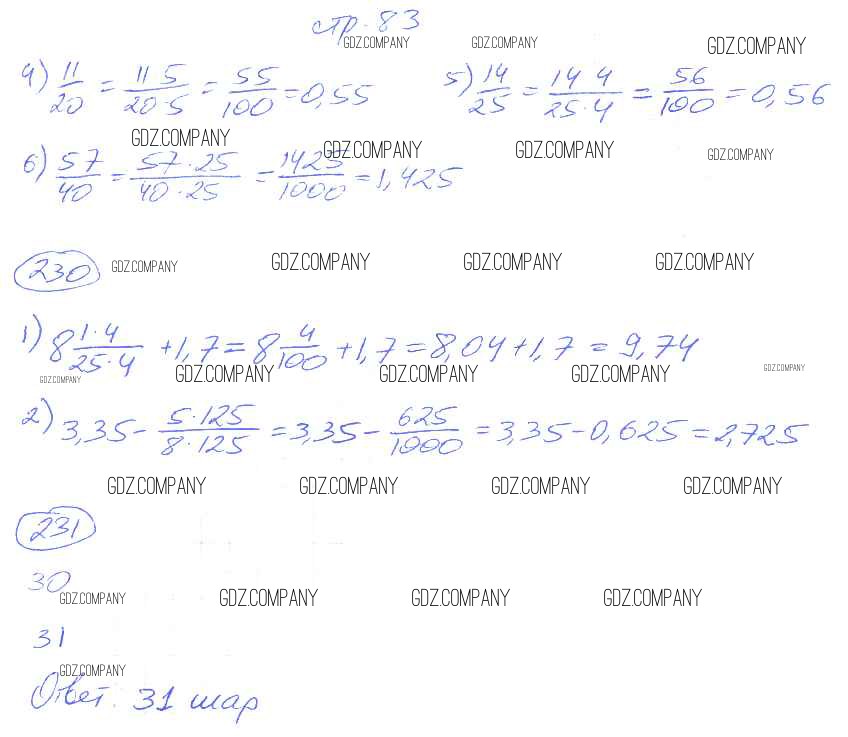 стр. 83
GDZ.COMPANY GDZ.COMPANY GDZ.COMPANY
4) 11/20 = 11·5/20·5 = 55/100 = 0,55 5) 14/25 = 14·4/25·4 = 56/100 = 0,56
GDZ.COMPANY GDZ.COMPANY GDZ.COMPANY GDZ.COMPANY
6) 57/40 = 57·25/40·25 = 1425/1000 = 1,425
230 GDZ.COMPANY GDZ.COMPANY GDZ.COMPANY GDZ.COMPANY
1) 8 1·4/25·4 + 1,7 = 8 4/100 + 1,7 = 8,04 + 1,7 = 9,74
GDZ.COMPANY GDZ.COMPANY GDZ.COMPANY GDZ.COMPANY GDZ.COMPANY
2) 3,35 - 5·125/8·125 = 3,35 - 625/1000 = 3,35 - 0,625 = 2,725
GDZ.COMPANY GDZ.COMPANY GDZ.COMPANY GDZ.COMPANY
231
30
GDZ.COMPANY GDZ.COMPANY GDZ.COMPANY GDZ.COMPANY
31
GDZ.COMPANY
Ответ. 31 шар